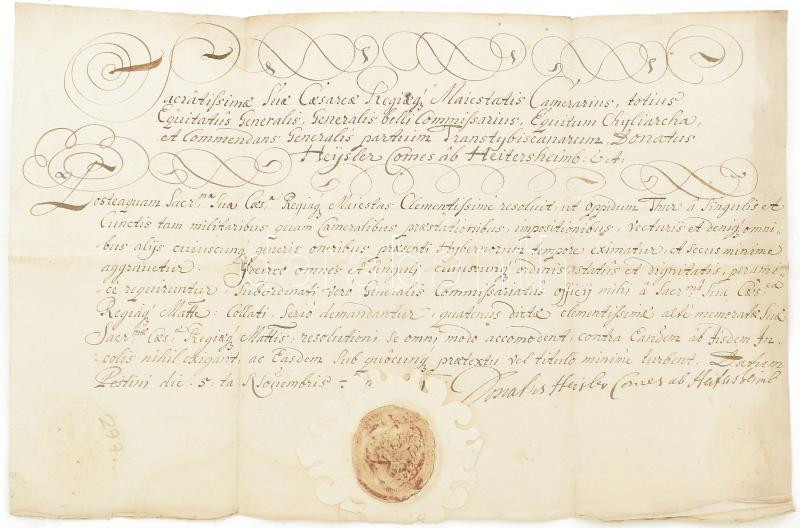 Sacratissimæ Suæ Cæsareæ Regiæq́ꝫ Maiestatis Camerarius, totius
Equitatus Generalis, Generalis belli Commissarius, Equitum Chyliarcha,
et Commendans Generalis partium Transtybiscanarum, Donatus
Heÿsler Comes ab Heitersheimb. &. A.
Posteaquam Sacr:ma Sua Cæs:a Regiaq́ꝫ Maiestas Clementissime resoluit, ut Oppidum Thur à Singulis et
Cunctis tam militaribus quam Cameralibus præstationibus, impositionibus, Vecturis et deniqꝫ omni-
bus alijs cuiuscunqꝫ generis oneribus præsenti Hybernorum tempore eximatur, et secus minime
aggrauetur. Idcirco omnes et Singuli cuiuscunqꝫ ordinis status et dignitatis, perami-
ce requiruntur, Subordinati verò Generalis Commissariatus officij mihi à Sacr:ma Sua Cæs:ea
Regiaq́ꝫ Matte: Collati, Seriò demandantur, quatenus dictæ clementissimæ alte memoratæ Suæ
Sacr:mæ Cæs:æ Regiæq́ꝫ Mattis: resolutioni se omni modo accomodent, contra Eandem ab Iisdem In-
colis nihil exigant, ac Easdem Sub quocunqꝫ prætextu vel titulo minime turbent. Datum
Pestini die 5:ta Nouembris
Donatus Heisler Comes ab Heitersheimb
299